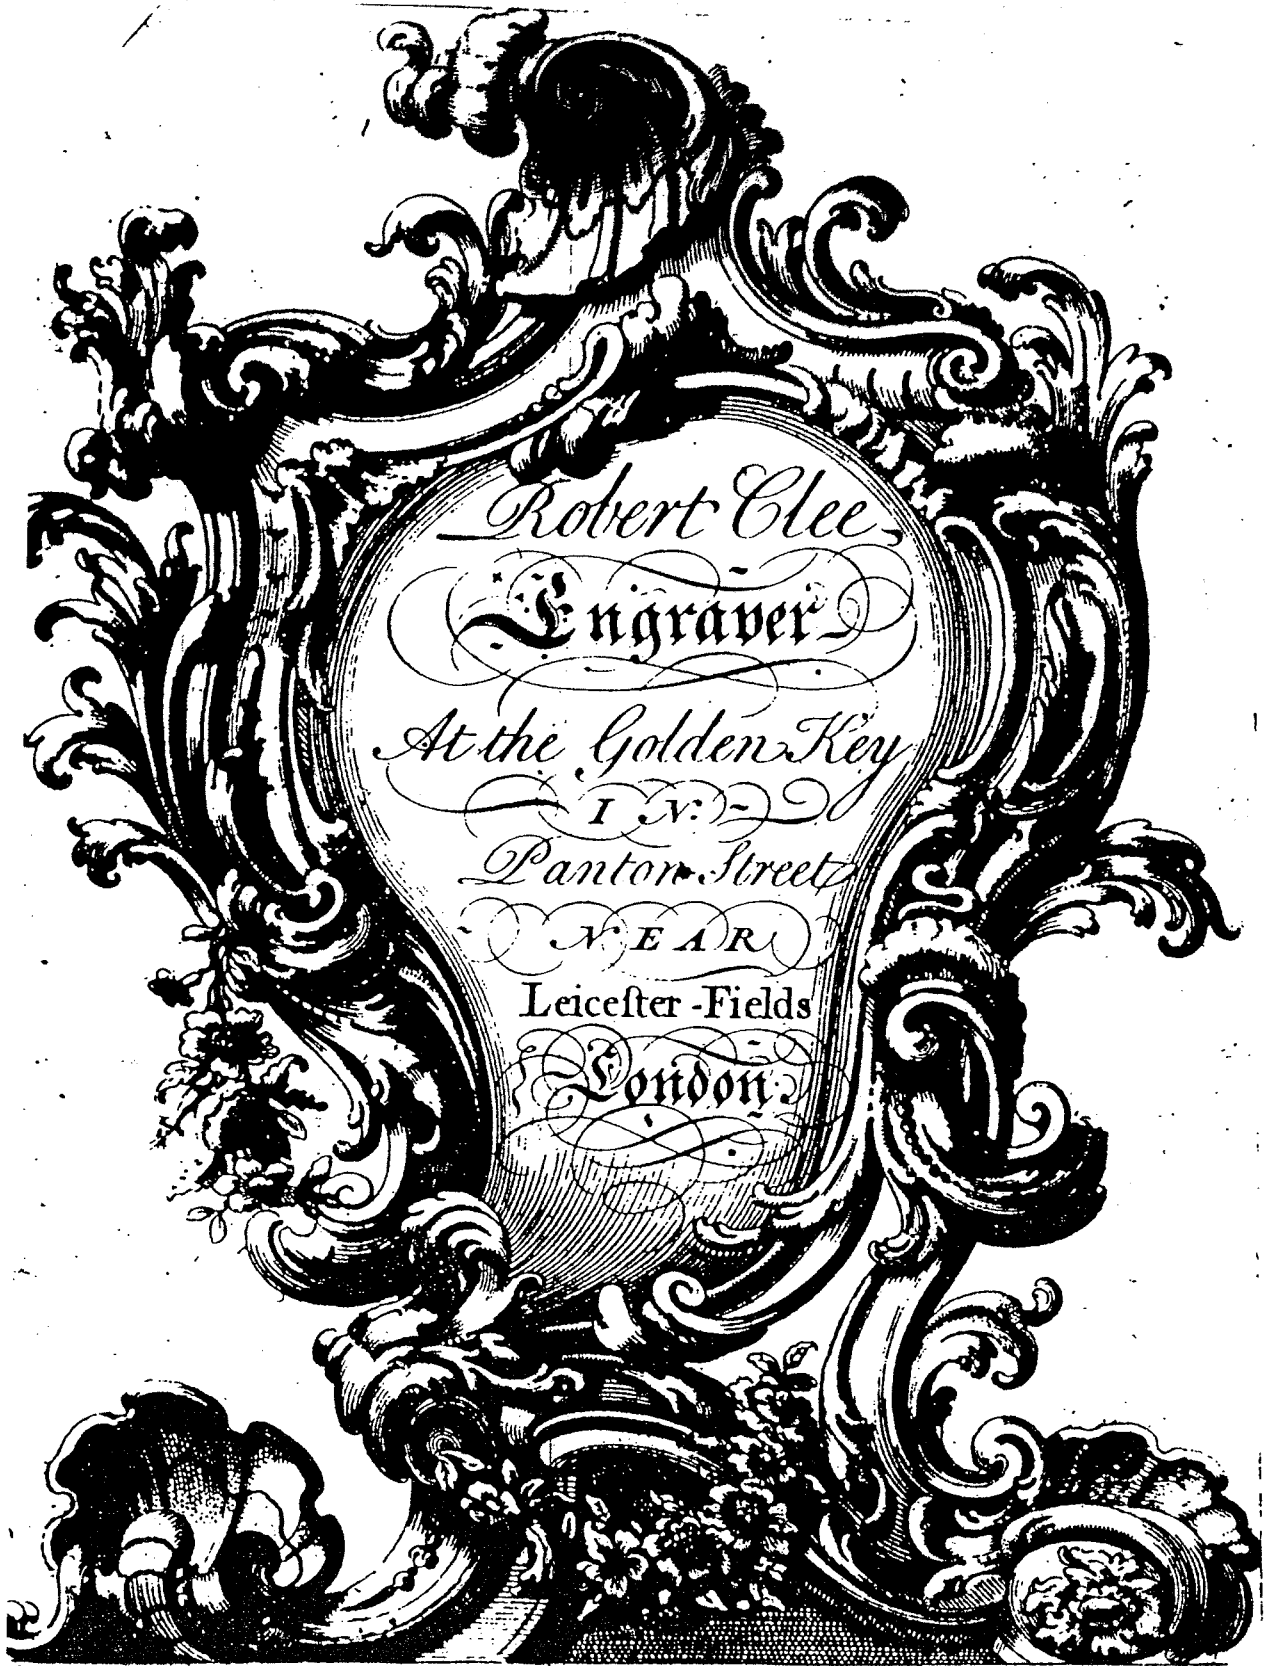 Robert Clee
Engraver
At the Golden Key
IN
Panton Street
NEAR
Leiceſter-Fields
London